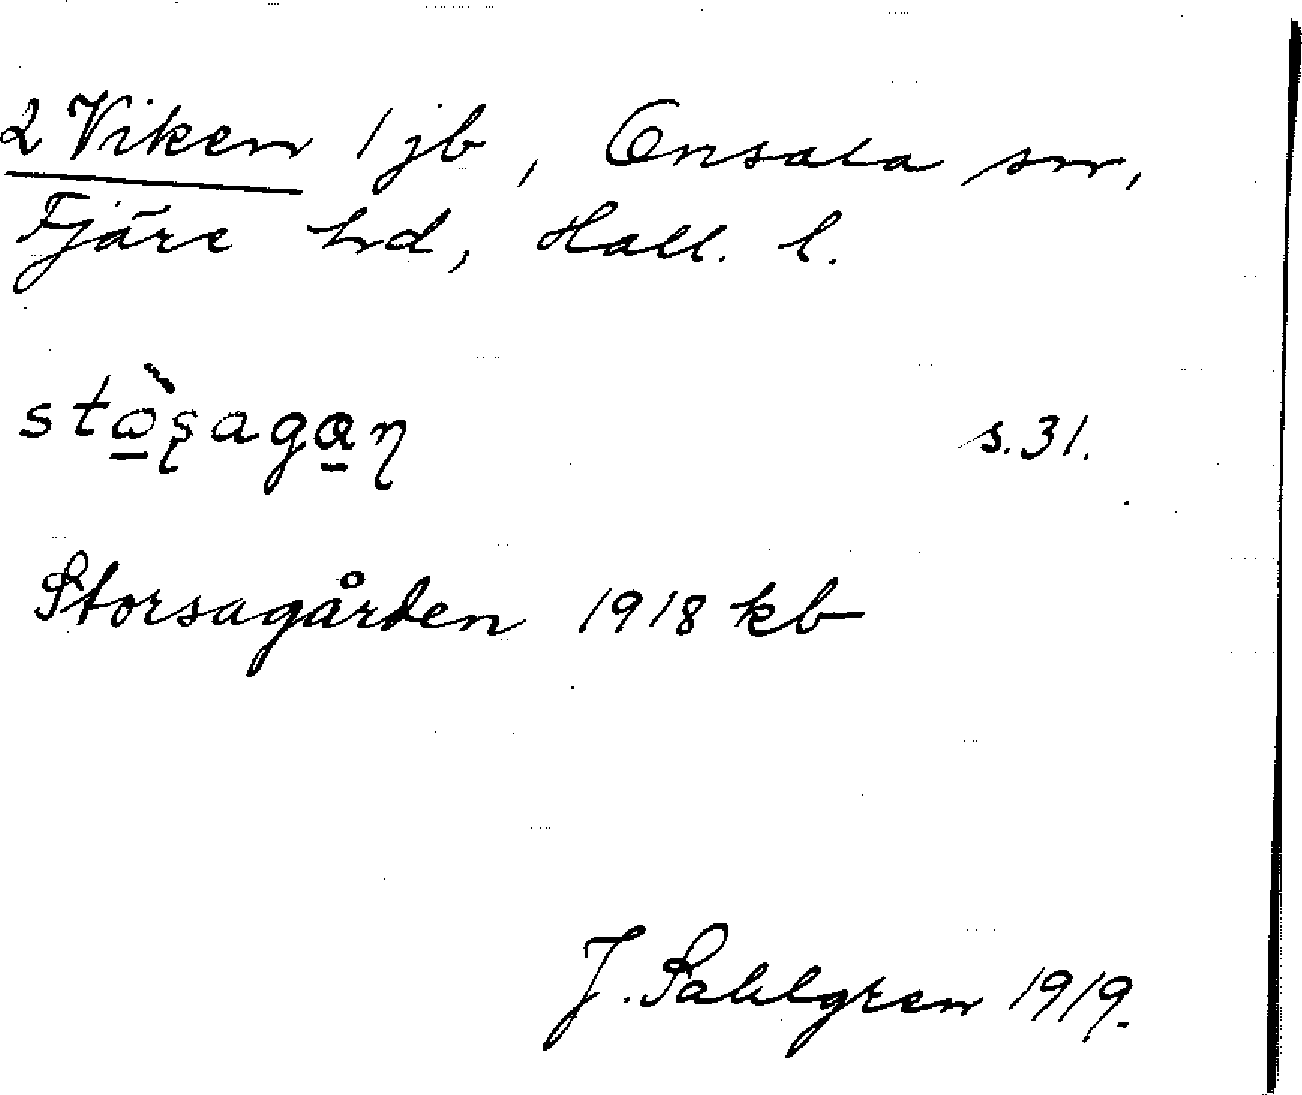 2 Viken 1 jb, Onsala sn,
Fjäre hd, Hall. l.
stὼ̲ʂagα̲ɳ s.31.
Storsagården 1918 kb
J. Sahlgren 1919.